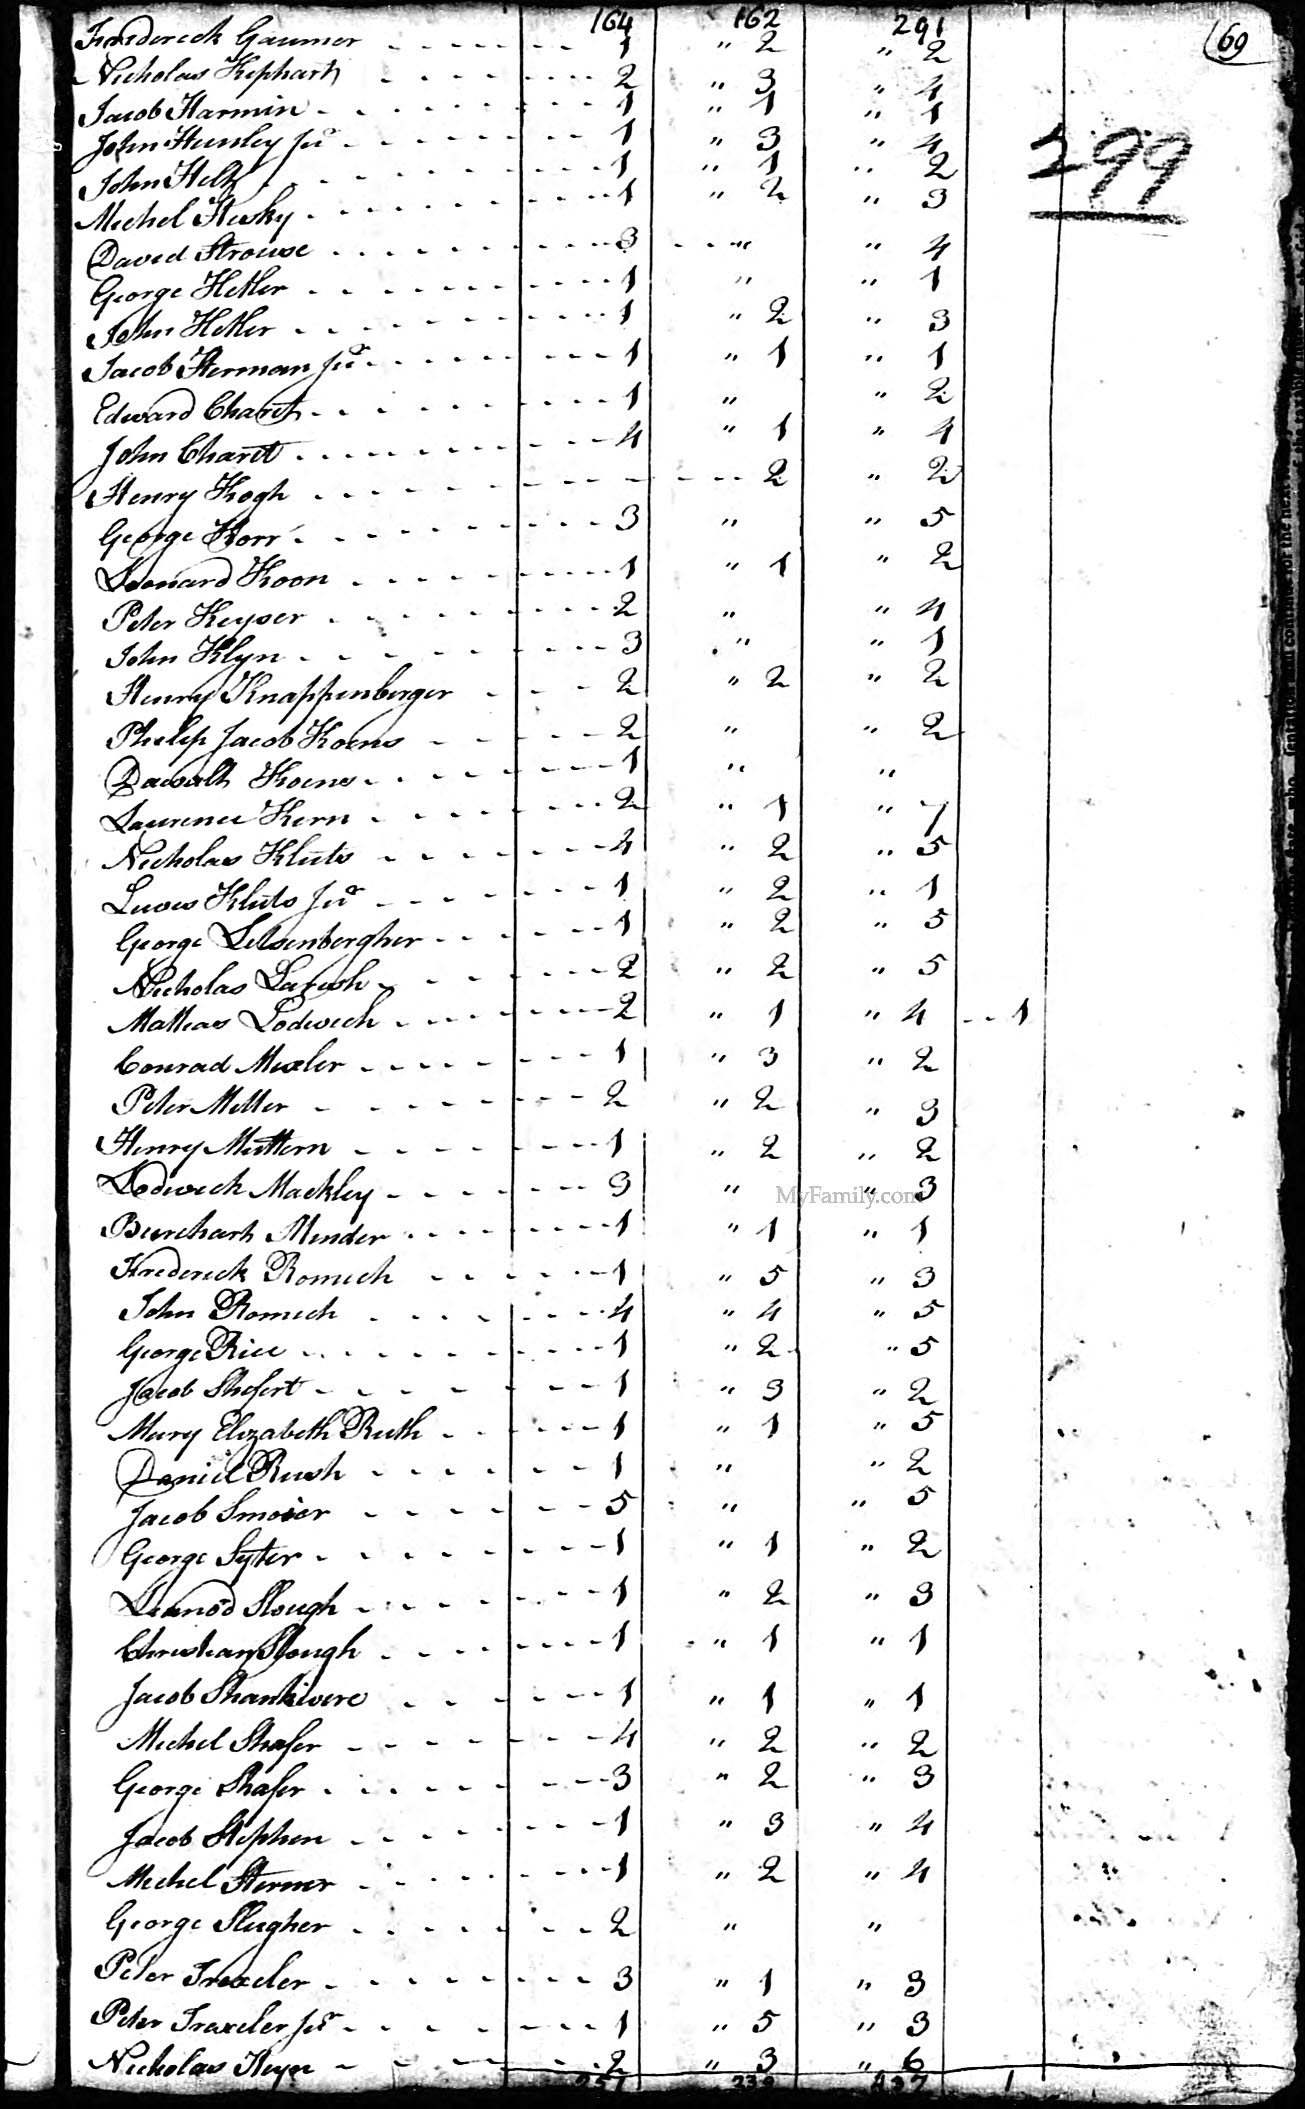 164 162 291 69
Frederick Gaumer 1 " 2 " 2
Nicholas Kephart 2 " 3 " 4
299
Jacob Harmin 1 " 1 " 1
John Hunley Jur 1 " 3 " 4
John Helf 1 " 1 " 2
Michel Husky 1 " 2 " 3
David Strouse 3 " " 4
George Hetler 1 " " 1
John Hetler 1 " 2 " 3
Jacob Herman Jur 1 " 1 " 1
Edward Charet 1 " " 2
John Charet 4 " 1 " 4
Henry Kogh 2 " 2
George Korr 3 " " 5
Leonard Koon 1 " 1 " 2
Peter Keyser 2 " " 4
John Klyn 3 " " 1
Henry Knappenberger 2 " 2 " 2
Philip Jacob Koens 2 " " 2
Dawalt Koens 1 " "
Laurence Kern 2 " 1 " 7
Nicholas Kluts 4 " 2 " 5
Lewes Kluts Jur 1 " 2 " 1
George Lelsenbergher 1 " 2 " 5
Nicholas Larish 2 " 2 " 5
Mathias Lodwich 2 " 1 " 4 1
Conrad Mexler 1 " 3 " 2
Peter Meller 2 " 2 " 3
Henry Muttern 1 " 2 " 2
Lodwich Mackley 3 " " 3
MyFamily.com
Burchart Minder 1 " 1 " 1
Frederick Romich 1 " 5 " 3
John Romich 4 " 4 " 5
George Rice 1 " 2 " 5
Jacob Shefert 1 " 3 " 2
Mary Elizabeth Ruth 1 " 1 " 5
Daniel Rush 1 " " 2
Jacob Smoier 5 " " 5
George Syter 1 " 1 " 2
Leanod Slough 1 " 2 " 3
Christian Slough 1 " 1 " 1
Jacob Shankwere 1 " 1 " 1
Michel Shafer 4 " 2 " 2
George Shafer 3 " 2 " 3
Jacob Stephen 1 " 3 " 4
Michel Sterner 1 " 2 " 4
George Slugher 2 " "
Peter Trexeler 3 " 1 " 3
Peter Traxeler Jur 1 " 5 " 3
Nicholas Keyn 2 " 3 " 6
257 230 437 1